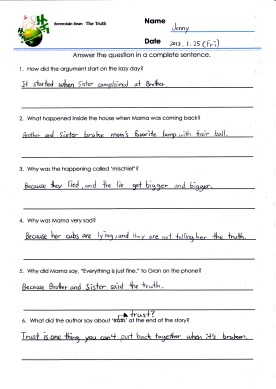 Berenstain Bears The Truth
Name Jenny
Date 2013. 1. 25 (Fri)
Answer the question in a complete sentence.
1. How did the argument start on the lazy day?
It started when Sister complained at Brother.
2. What happened inside the house when Mama was coming back?
Brother and Sister broke mom's favorite lamp with their ball.
3. Why was the happening called "mischief"?
Because they lied, and the lie got bigger and bigger.
4. Why was Mama very sad?
Because her cubs are lying, and they are not telling her the truth.
5. Why did Mama say, "Everything is just fine," to Gran on the phone?
Because Brother and Sister said the truth.
trust?
6. What did the author say about "truth" at the end of the story?
Trust is one thing you can't put back together when it's broken.